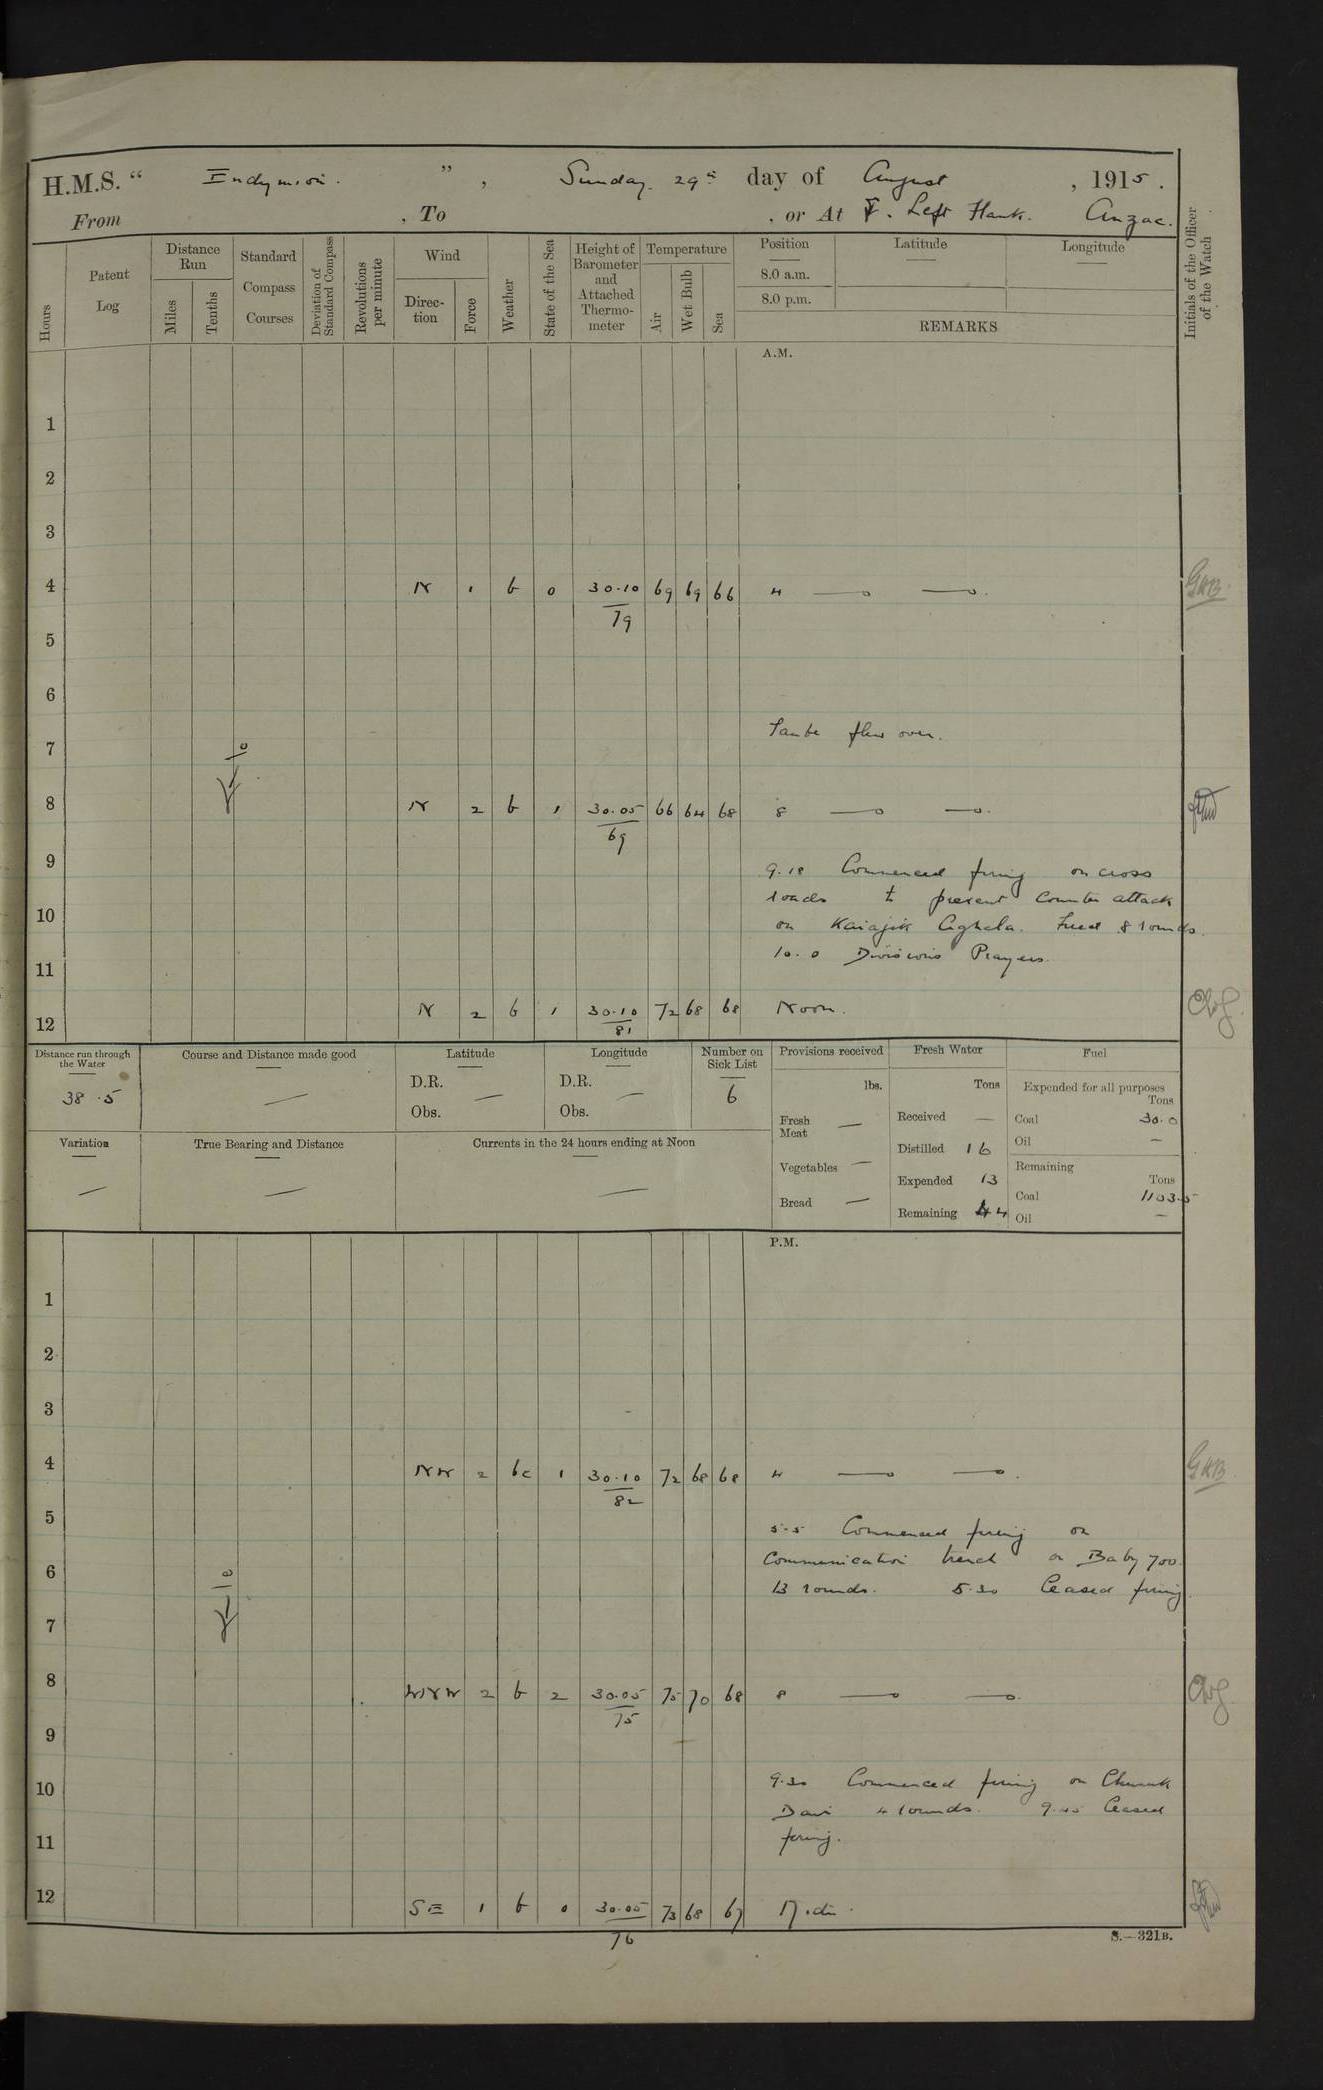 H.M.S. “ Endymion. ” , Sunday 29th day of August , 1915.
From , To , or At Left Flank. Anzac.
Hours
Patent Log
Distance Run
Miles
Tenths
Standard Compass Courses
Deviation of Standard Compass
Revolutions per minute
Wind
Direction
Force
Weather
State of the Sea
Height of Barometer and Attached Thermometer
Temperature
Air
Wet Bulb
Sea
Position
8.0 a.m.
8.0 p.m.
Latitude —
Longitude —
REMARKS
Initials of the Officer of the Watch
A.M.
1
2
3
4 N 1 b 0 30.10 69 69 66 4 — —
79
5
6
Taube flew over.
7
8 N 2 b 1 30.05 66 64 68 8 — —
69
9
9.18 Commenced firing on cross
roads to prevent counter attack
10
on Kaiajik Aghala. Fired 8 rounds.
10.0 Divisions Prayers.
11
12 N 2 b 1 30.10 72 68 68 Noon.
81
Distance run through the Water
38.5
Course and Distance made good
—
Latitude
D.R. —
Obs.
Longitude
D.R. —
Obs.
Number on Sick List
6
Provisions received
lbs.
Fresh Meat —
Vegetables —
Bread —
Fresh Water
Tons
Received —
Distilled 16
Expended 13
Remaining 44
Fuel
Expended for all purposes
Tons
Coal 30.0
Oil —
Remaining
Tons
Coal 1103.5
Oil —
Variation
—
True Bearing and Distance
—
Currents in the 24 hours ending at Noon
—
P.M.
1
2
3
4 NW 2 bc 1 30.10 72 68 68 4 — —
82
5
5.5 Commenced firing on
Communication trench on Baby 700.
6
13 rounds. 5.30 Ceased firing.
7
8 WNW 2 b 2 30.05 75 70 68 8 — —
75
9
10
9.30 Commenced firing on Chunuk
Bair 4 rounds. 9.45 Ceased
11
firing.
12 SE 1 b 0 30.05 73 68 67 Mdt.
76
S.—321B.